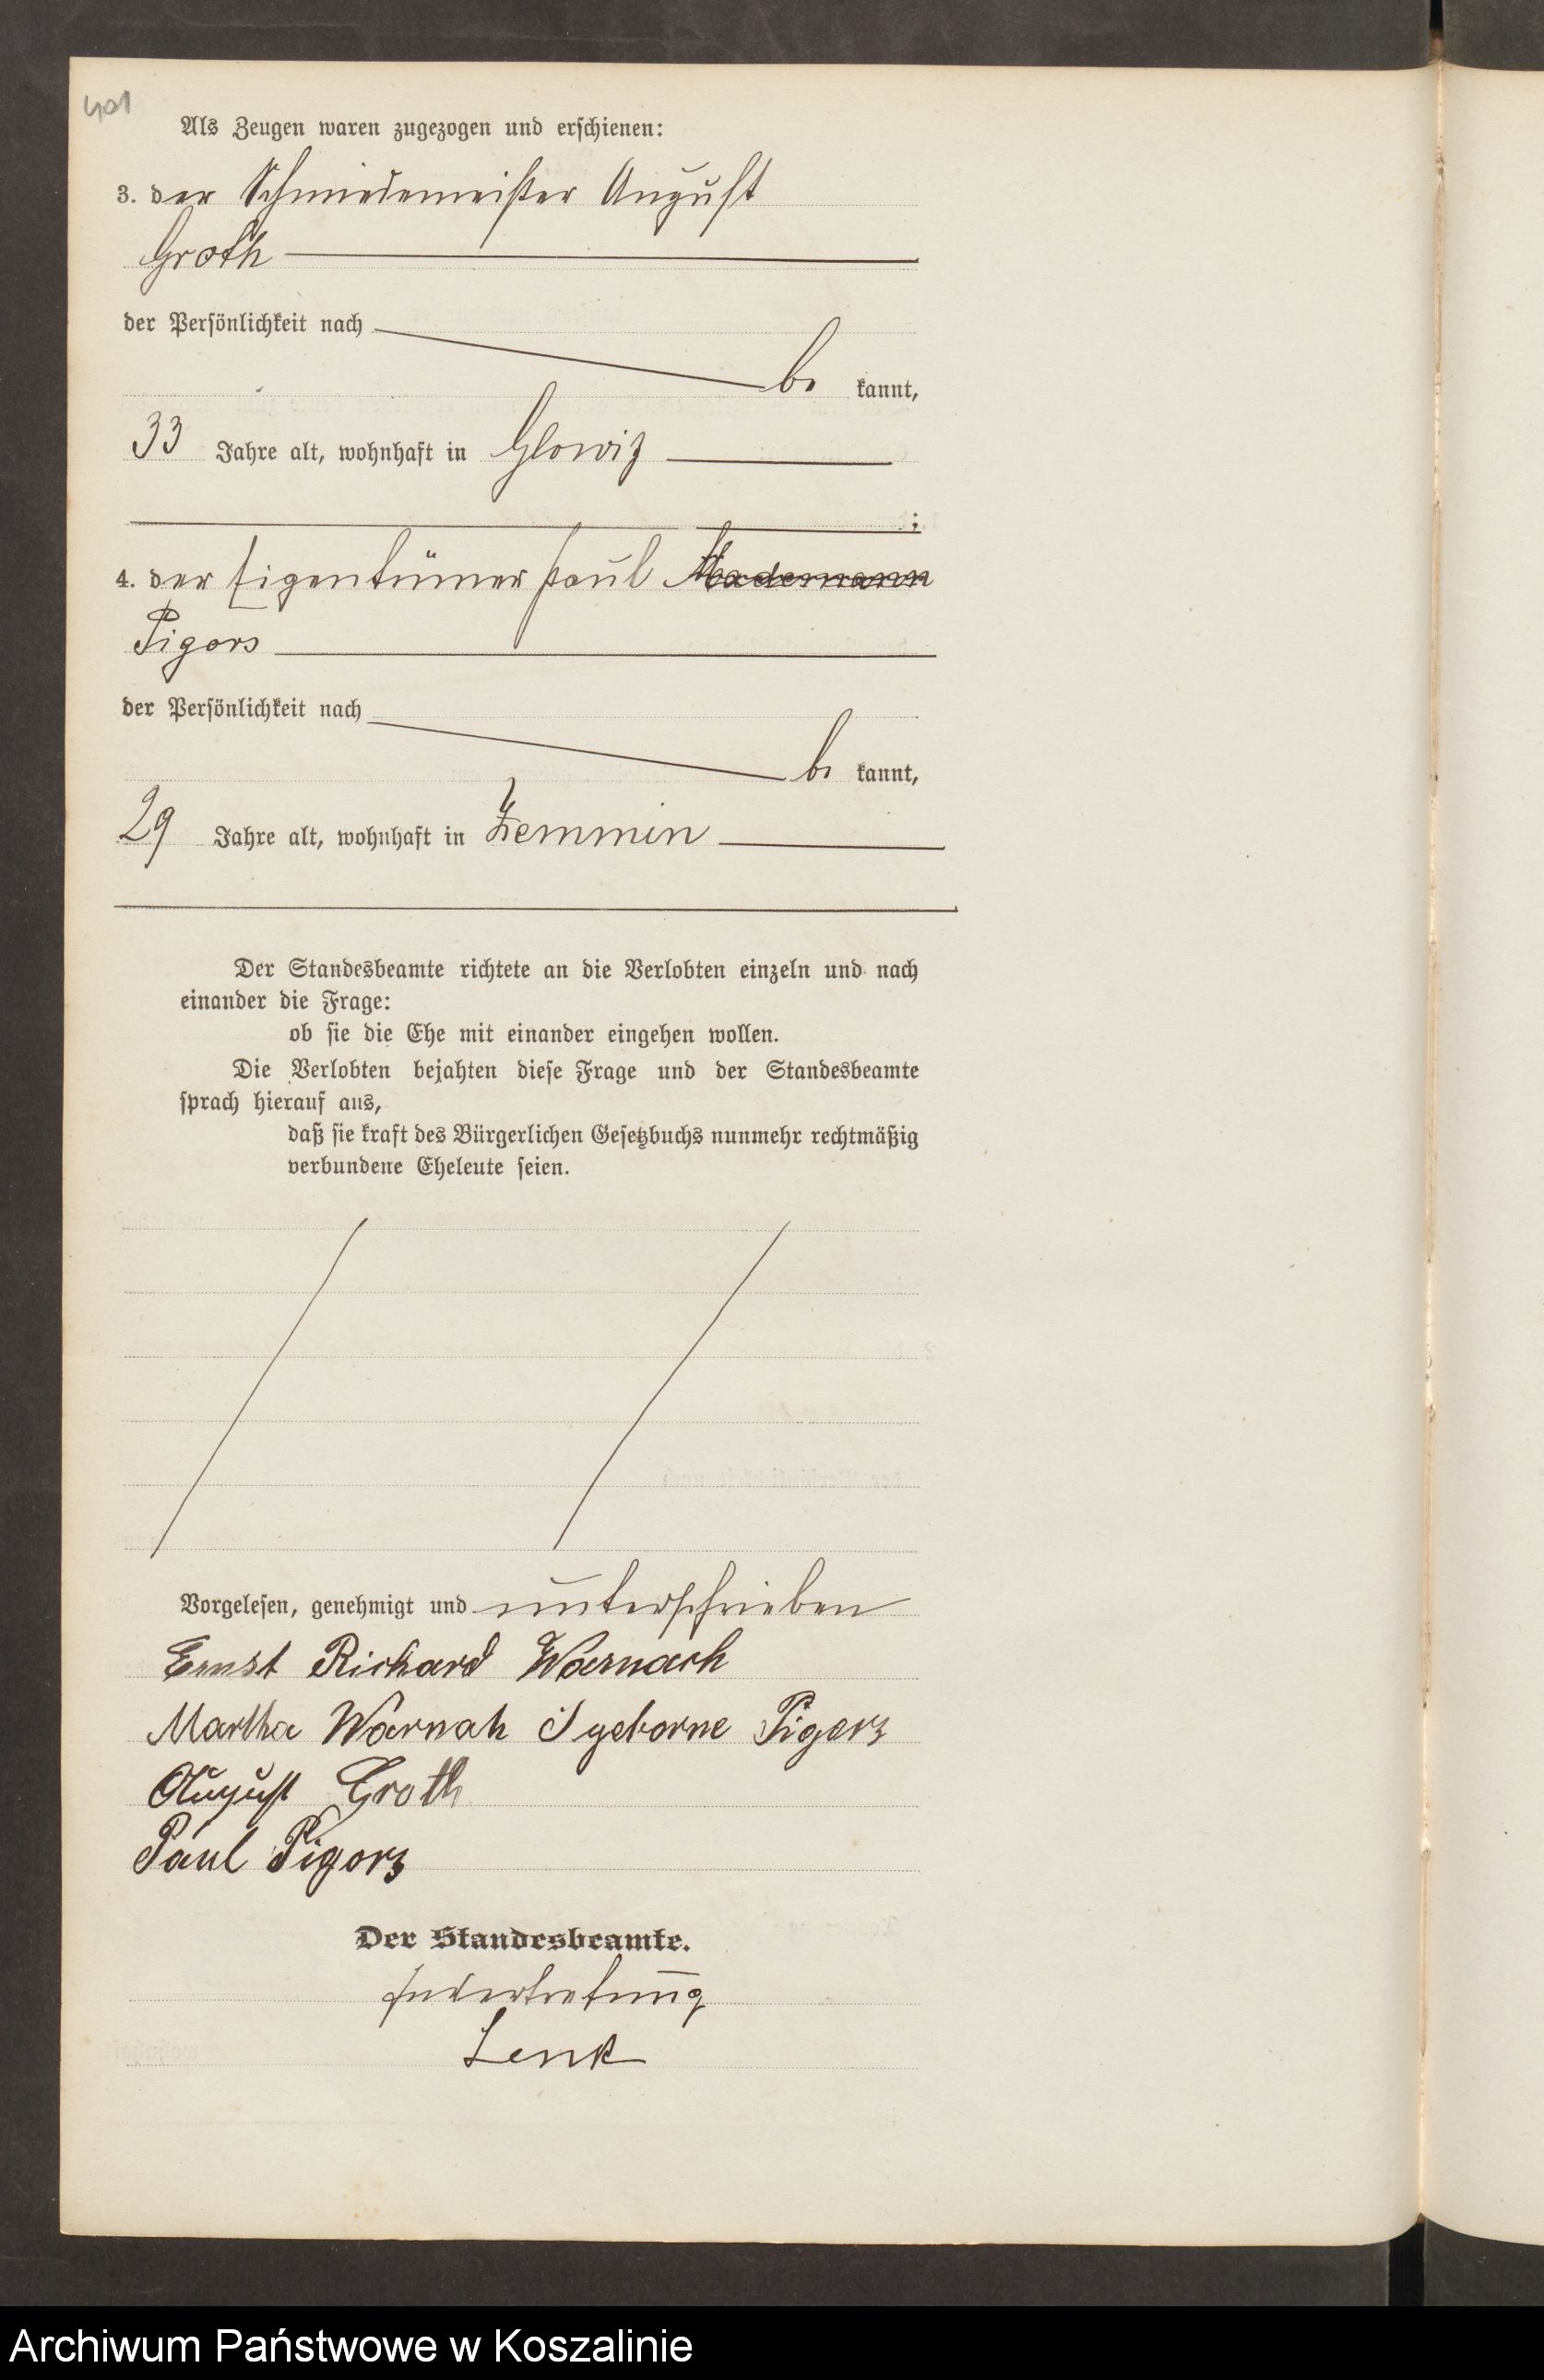 401
Als Zeugen waren zugezogen und erschienen:
3. der Schmiedemeister August
Groth
der Persönlichkeit nach
be kannt,
33 Jahre alt, wohnhaft in Glowitz
;
4. der Eigentümer Paul
Pigors
der Persönlichkeit nach
be kannt,
29 Jahre alt, wohnhaft in Zemmin
Der Standesbeamte richtete an die Verlobten einzeln und nach
einander die Frage:
ob sie die Ehe mit einander eingehen wollen.
Die Verlobten bejahten diese Frage und der Standesbeamte
sprach hierauf aus,
daß sie kraft des Bürgerlichen Gesetzbuchs nunmehr rechtmäßig
verbundene Eheleute seien.
Vorgelesen, genehmigt und unterschrieben
Ernst Richard Warnach
Martha Warnah geborne Pigors
August Groth
Paul Pigors
Der Standesbeamte.
In Vertretung
Lenk
Archiwum Państwowe w Koszalinie